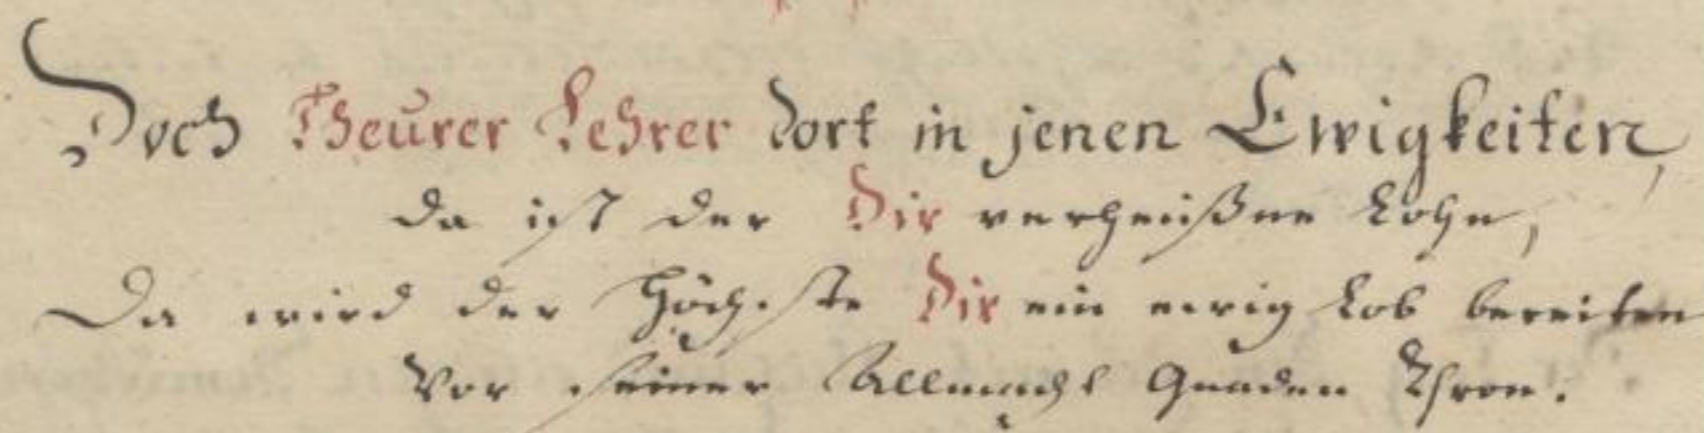 Doch Theurer Lehrer dort in jenen Ewigkeiten,
da ist der Dir verheißne Lohn,
Da wird der Höchste Dir ein ewig Lob bereiten
Vor seiner Allmacht Gnaden Thron.